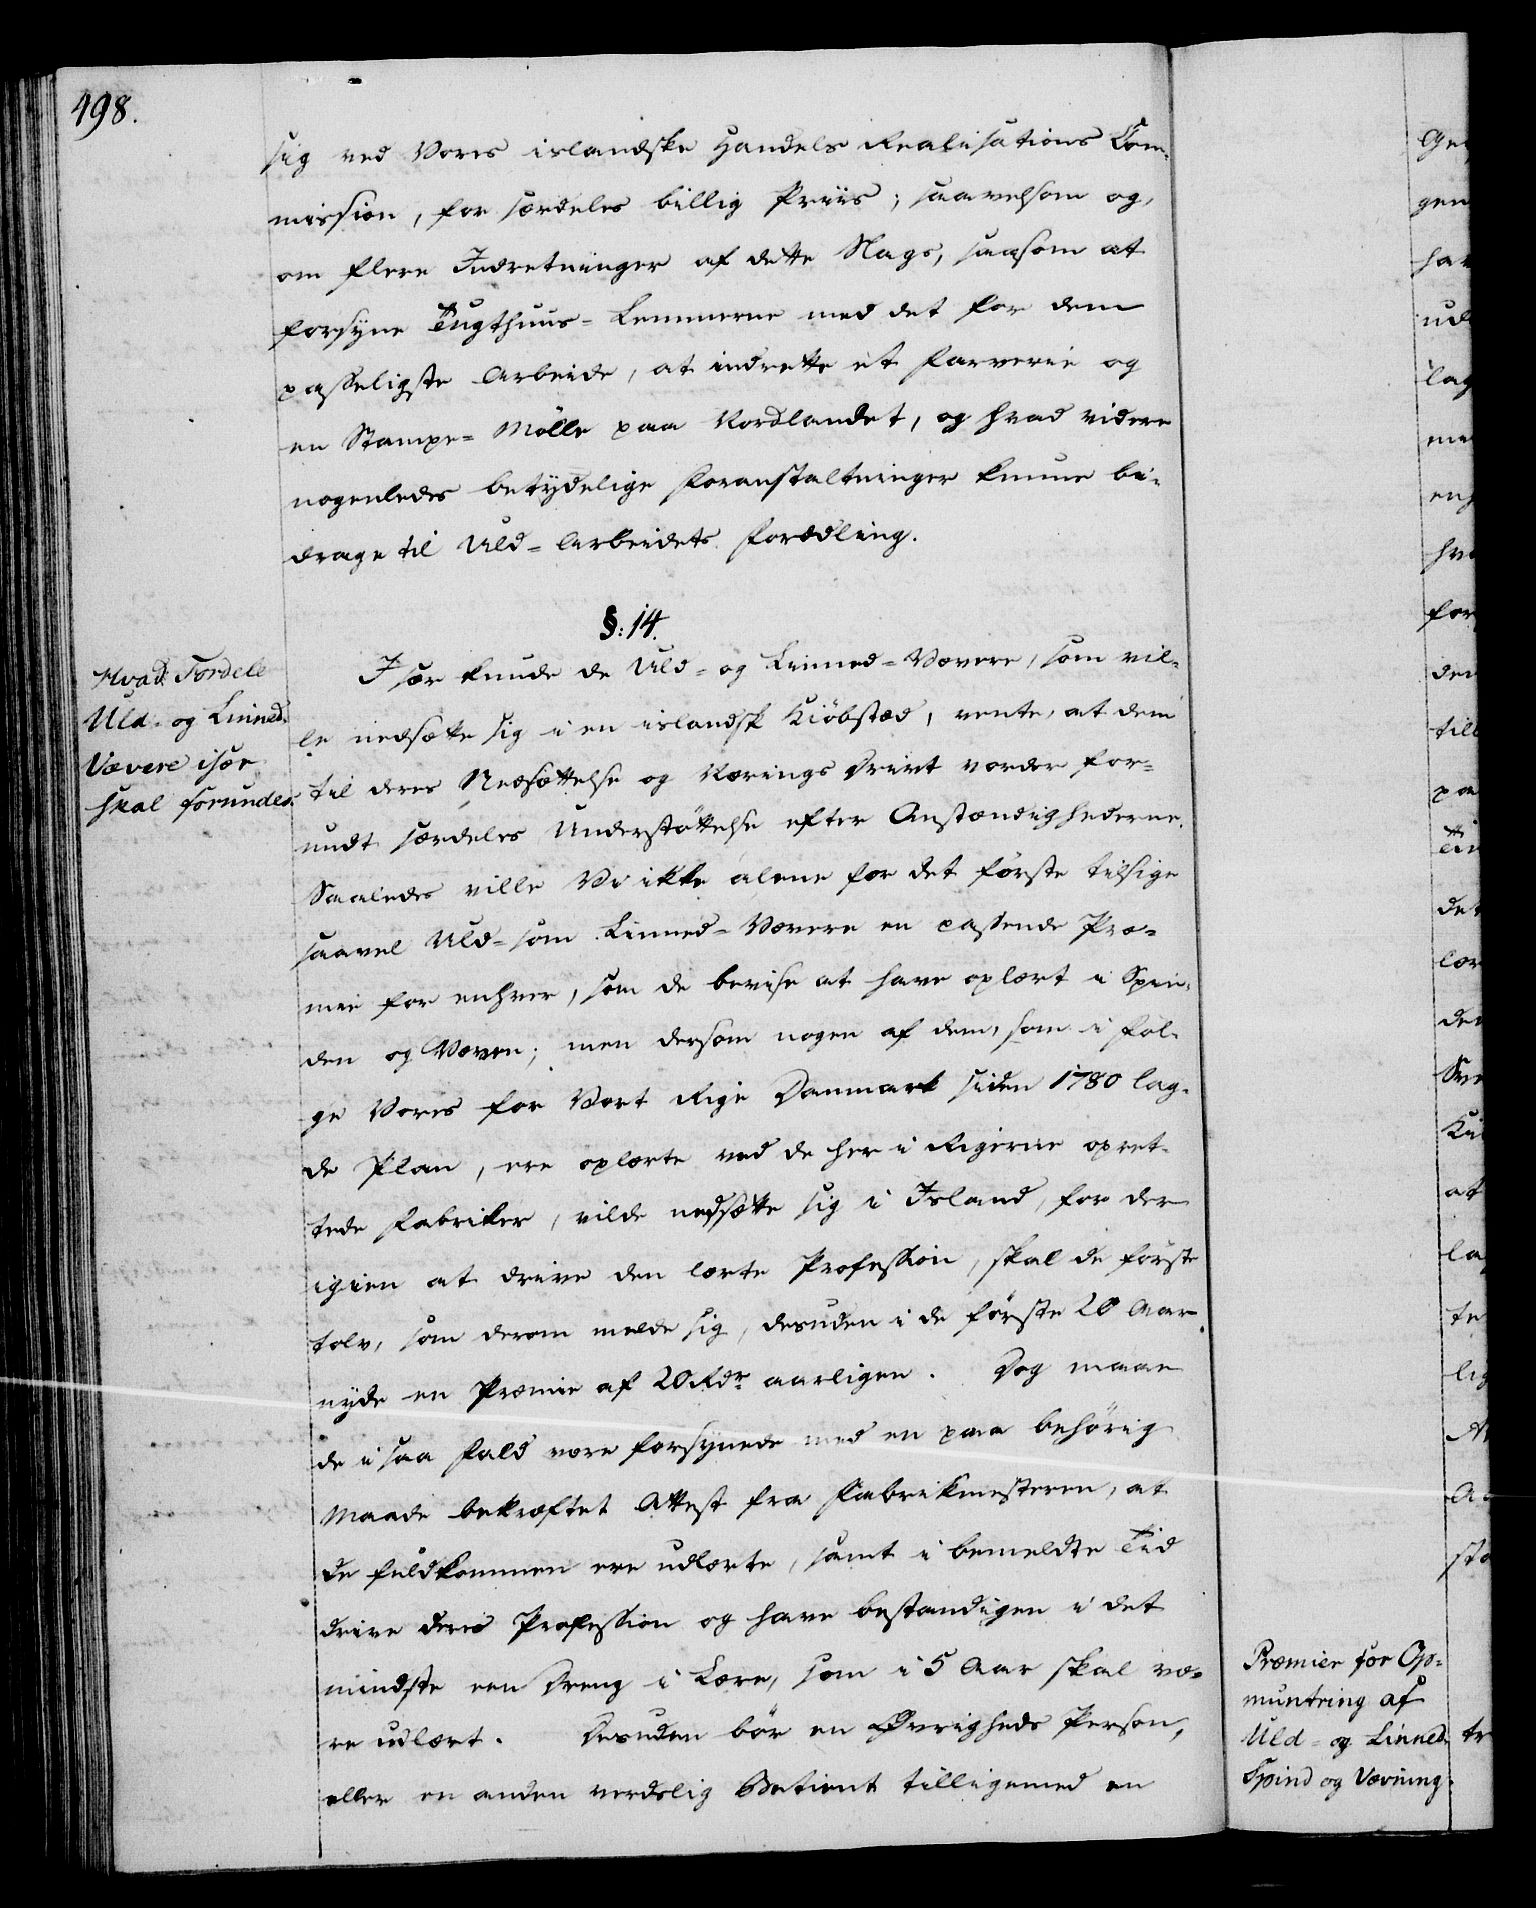 498.
sig ved Vores islandske Handels Realisations Com-
mission, for særdeles billig Priis; saavelsom og,
om flere Indretninger af dette Slags, saasom at
forsyne Tugthuus-Lemmerne med det for dem
passeligste Arbeide, at indrette et Farverie og
en Stampe-Mölle paa Nordlandet, og hvad videre
nogenledes betydelige Foranstaltninger kunne bi-
drage til Uld-Arbeidets Forædling.
§: 14.
Hvad Fordele
Uld- og Linned-
Vævere især
skal forundes.
Især kunde de Uld- og Linned-Vævere, som vil-
le nedsætte sig i en islandsk Kiöbstæd, vente, at dem
til deres Nedsættelse og Nærings Drivt vorder for-
undt særdeles Understöttelse efter Omstændighederne.
Saaledes ville Vi ikke alene for det förste tilsige
saavel Uld- som Linned-Vævere en passende Præ-
mie for enhver, som de bevise at have oplært i Spin-
den og Væven; men dersom nogen af dem, som i föl-
ge Vores for Vort Rige Danmark siden 1780 lag-
de Plan, ere oplærte ved de her i Rigerne opret-
tede Fabriker, vilde nedsætte sig i Island, for der
igien at drive den lærte Profession, skal de förste
tolv, som derom melde sig, desuden i de förste 20 Aar
nyde en Præmie af 20 Rdr aarligen. Dog maae
de i saa Fald være forsynede med en paa behörig
Maade bekræftet Attest fra Fabrikmesteren, at
de fuldkommen ere udlærte, samt i bemeldte Tid
drive deres Profession og have bestandigen i det
mindste een Dreng i Lære, som i 5 Aar skal væ-
re udlært. Desuden bör en Övrigheds Person,
eller en anden verdslig Betient tilligemed en
Præmier for Op-
muntring af
Uld- og Linned-
Spind og Vævning.